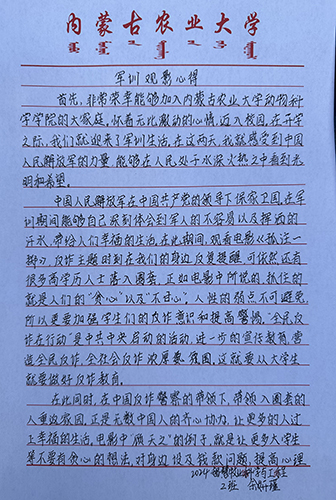 内蒙古农业大学
军训观影心得
首先,非常荣幸能够加入内蒙古农业大学动物科
学学院的大家庭,怀着无比激动的心情,迈入校园,在开学
之际,我们就迎来了军训生活,在这两天,我就感受到中国
人民解放军的力量,能够在人民处于水深火热之中看到光
明和希望。
中国人民解放军在中国共产党的领导下保家卫国,在军
训期间能够自己深刻体会到军人的不容易以及挥洒的
汗水,带给人们幸福的生活,在此期间,观看电影《孤注一
掷》,反诈主题时刻在我们的身边反复提醒,可依然还有
很多高学历人士落入圈套,正如电影中所说的,抓住的
就是人们的“贪心”以及“不甘心”,人性的弱点不可避免,
所以更要加强学生们的反诈意识和提高警惕,“全民反
诈在行动”是中共中央启动的活动,进一步的宣传教育,营
造全民反诈,全社会反诈浓厚氛围,这就要从大学生
就要做好反诈教育。
在此同时,在中国反诈警察的带领下,带领入圈套的
人重返家园,正是无数中国人的齐心协力,让更多的人过
上幸福的生活,电影中“顾天之”的例子,就是让更多大学生
是不要有贪心的想法,对身边设及钱款问题,提高心理
2024智慧牧业科学与工程
2班